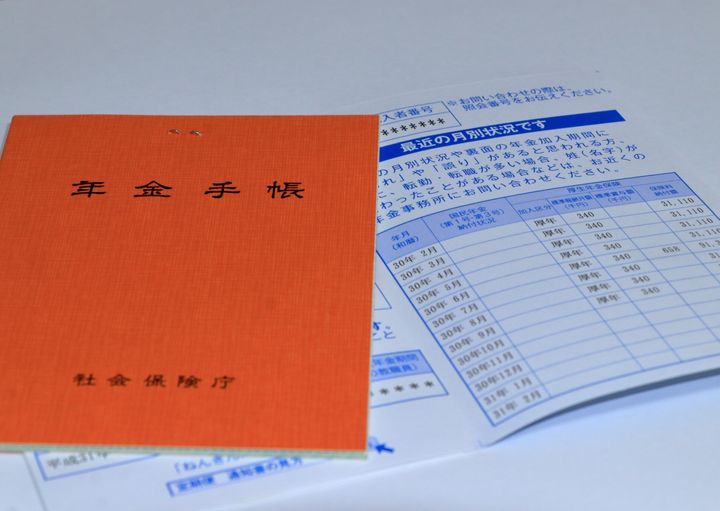 年金手帳
社会保険庁
入者番号
********
※お問い合わせの際は、
照会番号をお伝えください。
最近の月別状況です
の月別状況や裏面の年金加入期間に
れ」や「誤り」があると思われる方、
に、転勤、転職が多い場合、姓(名字)が
わったことがある場合などは、お近くの
年金事務所にお問い合わせください。
年月
(和暦)
国民年金
(第1号・第3号)
納付状況
厚生年金保険
加入区分
標準報酬月額
(千円)
標準賞与額
(千円)
保険料
納付額
30年 2月 厚年 340 31,110
30年 3月 厚年 340 31,110
30年 4月 厚年 340 658
30年 5月 厚年 340
30年 6月 厚年 340
30年 7月
30年 8月
30年 9月
30年10月
30年11月
30年12月
31年 1月
31年 2月
す。
と
年金期間
の教職員)
****
平成31年
「ねんきん
定期便 通知書の見方